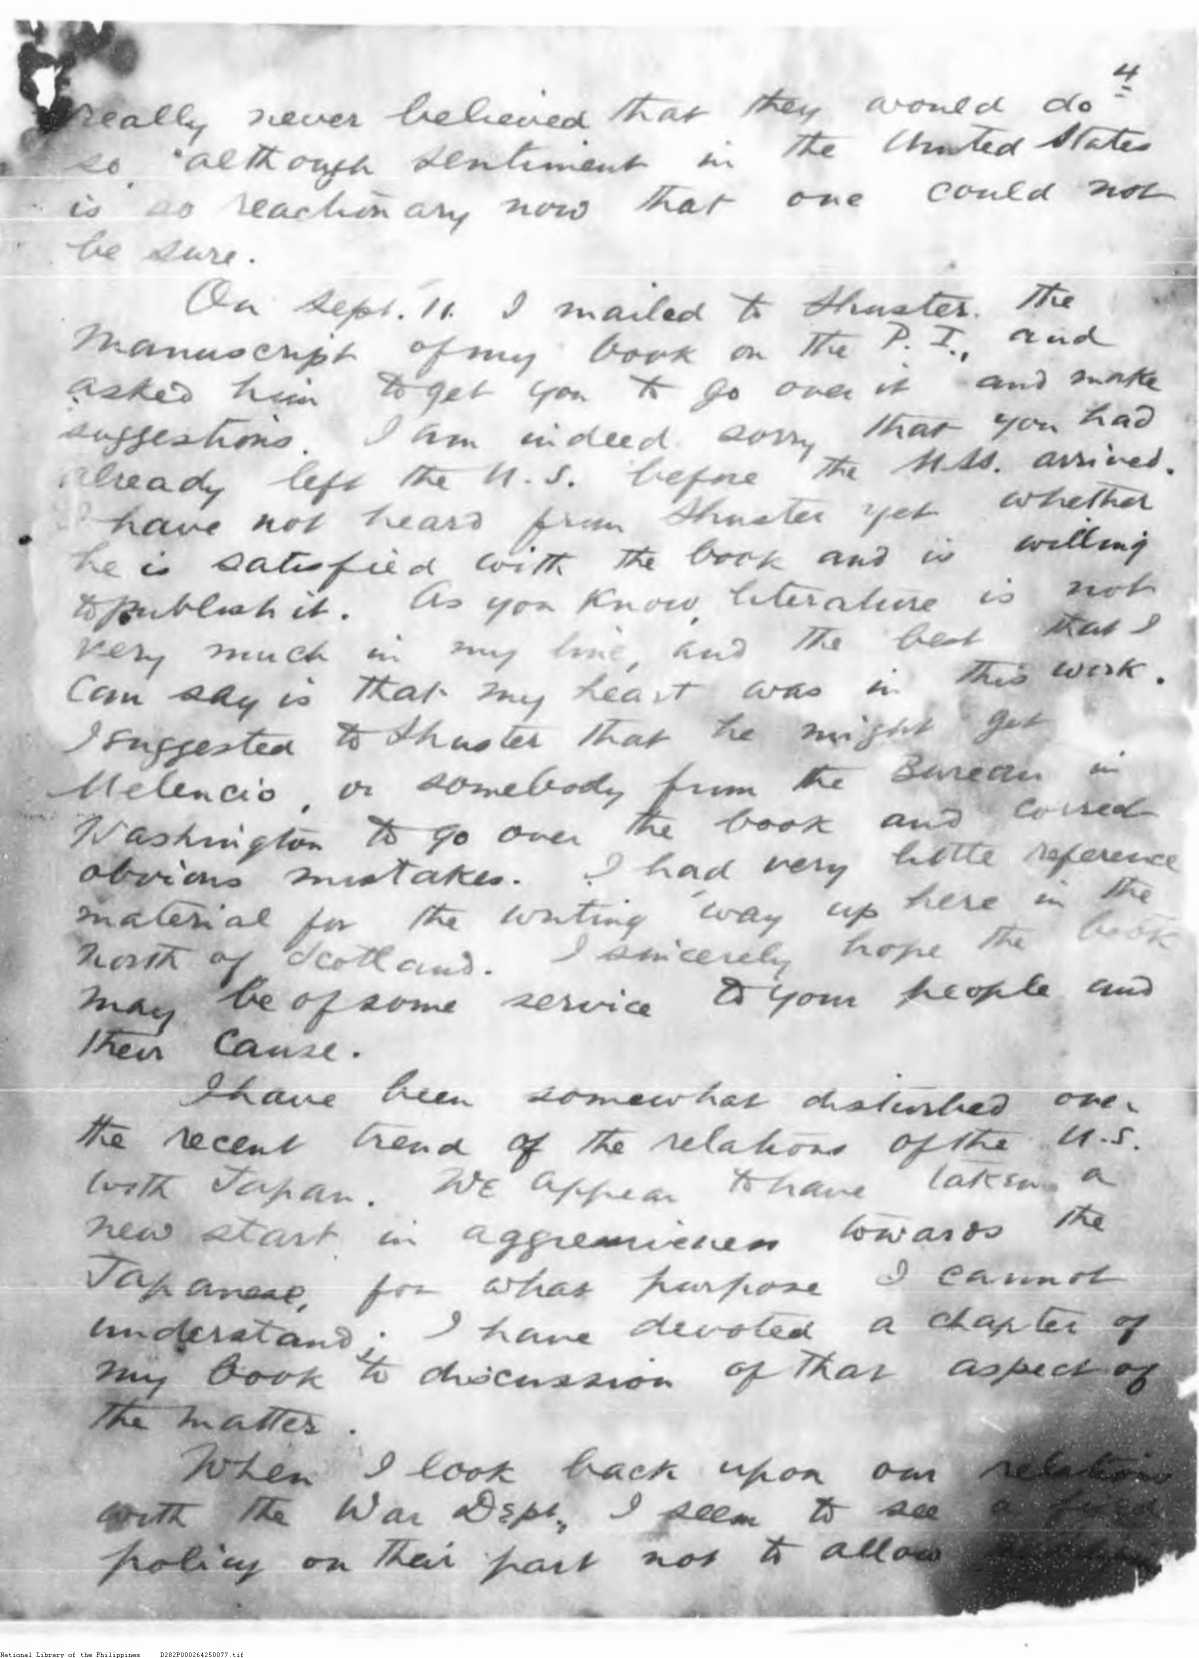 4
really never believed that they would do
so, although sentiment in the United States
is so reactionary now that one could not
be sure.
On Sept. 11. I mailed to Shuster. the
manuscript of my book on the P. I., and
asked him to get you to go over it and make
suggestions. I am indeed sorry that you had
already left the U. S. before the MSS. arrived.
I have not heard from Shuster yet whether
he is satisfied with the book and is willing
to publish it. As you know, literature is not
very much in my line, and the best that I
can say is that my heart was in this work.
I suggested to Shuster that he might get
Melencio, or somebody from the Bureau in
Washington to go over the book and correct
obvious mistakes. I had very little reference
material for the writing 'way up here in the
north of Scotland. I sincerely hope the book
may be of some service to your people and
their cause.
I have been somewhat disturbed over
the recent trend of the relations of the U.S.
with Japan. We appear to have taken a
new start in aggressiveness towards the
Japanese, for what purpose I cannot
understand; I have devoted a chapter of
my book to discussion of that aspect of
the matter.
When I look back upon our relations
with the War Dept., I seem to see a fixed
policy on their part not to allow
National Library of the Philippines D282P000264250077.tif